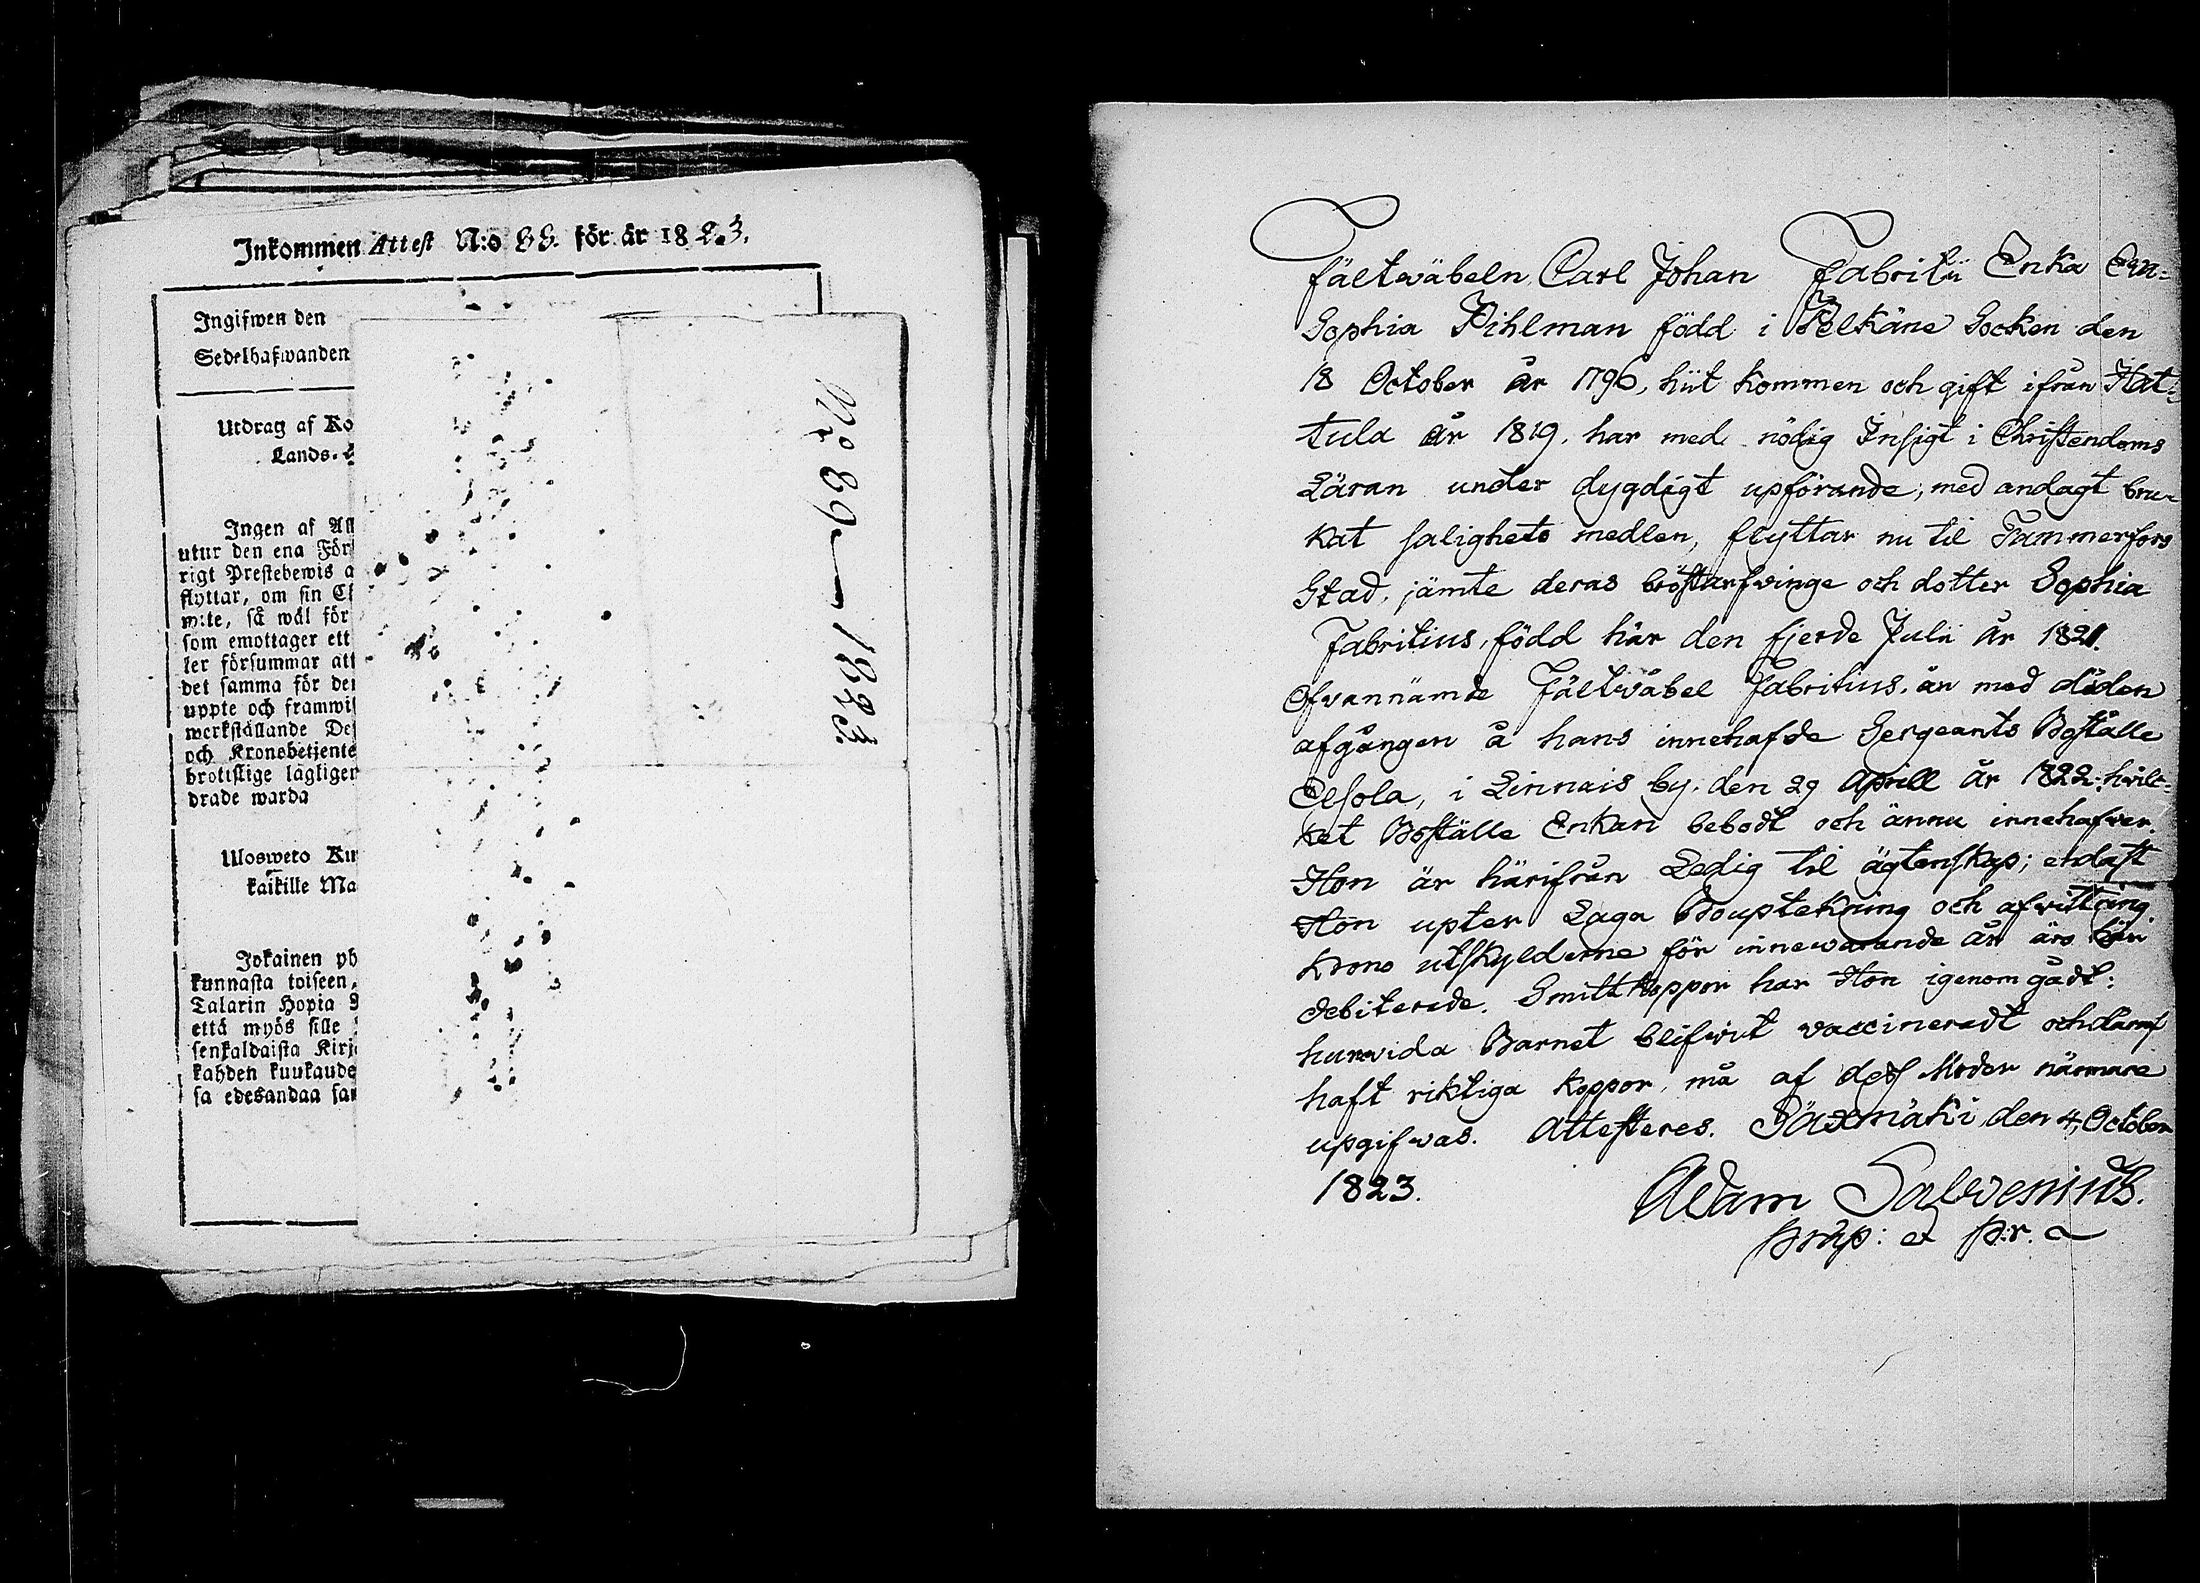 Inkommen Attest N:o 88. för år 1823.
Ingifwen den
Sedelhafwanden
Utdrag af Ko
Lands-
Ingen af All
utur den ena För
rigt Prestebewis a
flyttar, om sin Ch
w:te, så wäl för
som emottager ett
ler försummar att
det samma för der
uppte och framwis
werkställande Des
och Kronobetjente
brotslige lägligen
drade warda
Ulosweto Ku
kaikille Ma
Jokainen ph
kunnasta toiseen,
Talarin Hopia
että myös sille
senkaldaista Kirj
kahden kuukaude
sa edesandaa sa
No 89 — 1823.
Fältwäbeln Carl Johan Fabritii Enka Eva
Sophia Pihlman född i Pelkäne Socken den
18 October år 1796, hiit kommen och gift ifrån Hat-
tula år 1819. har med nödig Insigt i Christendoms
Läran under dygdigt upförande, med andagt bru-
kat salighets medlen, flyttar nu til Tammerfors
Stad, jämte deras bröstarfwinge och dotter Sophia
Fabritius, född här den fjerde Julii år 1821.
Ofvannämde Fältwäbel Fabritius, än med döden
afgången å hans innehafde Sergeants Boställe
Uesola, i Linnais by, den 29 Aprill år 1822: hvil-
ket Boställe Enkan bebodt och ännu innehafver.
Hon är härifrån Ledig til ägtenskap; endast
Hon upter Laga Bouptekning och afvittring.
Krono utskylderne för innewarande år äro här
debiterede. Smittkoppor har Hon igenomgådt:
hurvida Barnet blifvit vaccineradt och
haft riktiga koppor, må af dess Moder närmare
upgifwas. Attesteres. Säxmäki den 4 October
1823.
Adam Salvenius.
prap: et p:r.